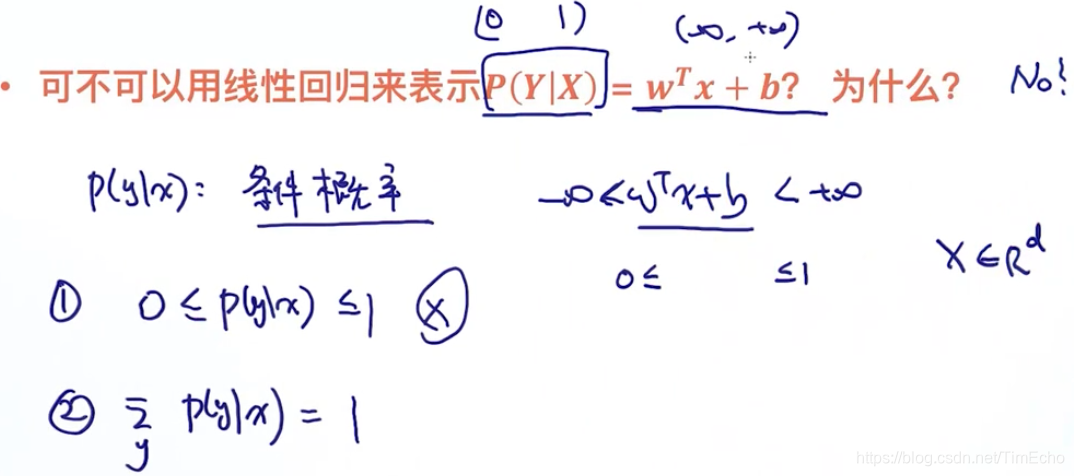 (0 1) (-∞, +∞)
• 可不可以用线性回归来表示P(Y|X) = wᵀx + b? 为什么? No!
p(y|x): 条件概率 -∞ < wᵀx+b < +∞
0≤ ≤1 X∈Rᵈ
① 0 ≤ p(y|x) ≤ 1 ⓧ
② Σ p(y|x) = 1
y
https://blog.csdn.net/TimEcho